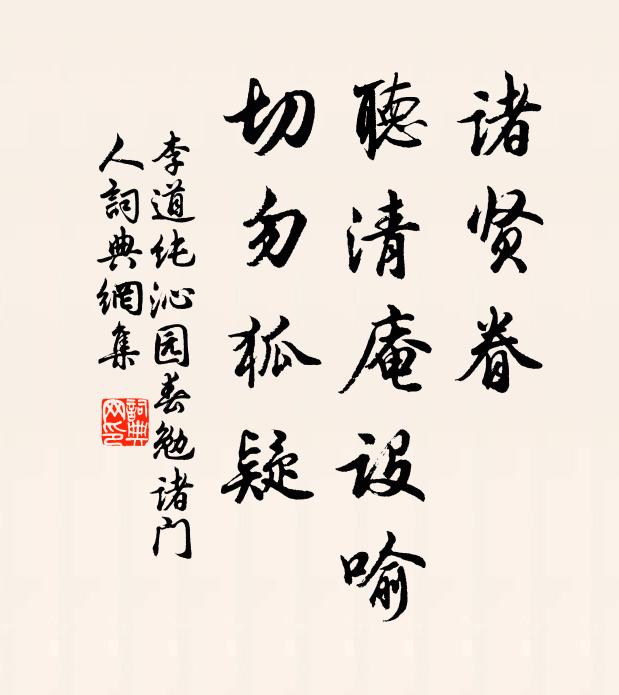 诸贤眷
聽清庵设喻
切勿狐疑
李道纯沁园春勉诸门
人詞典網集
詞典网印